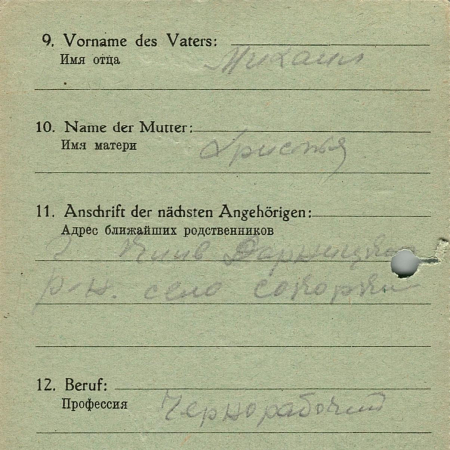 9. Vorname des Vaters:
Имя отца
Михаил
10. Name der Mutter:
Имя матери
Христья
11. Anschrift der nächsten Angehörigen:
Адрес ближайших родственников
г. Киив Дарницкий
р-н. село
12. Beruf:
Профессия
Чернорабочий